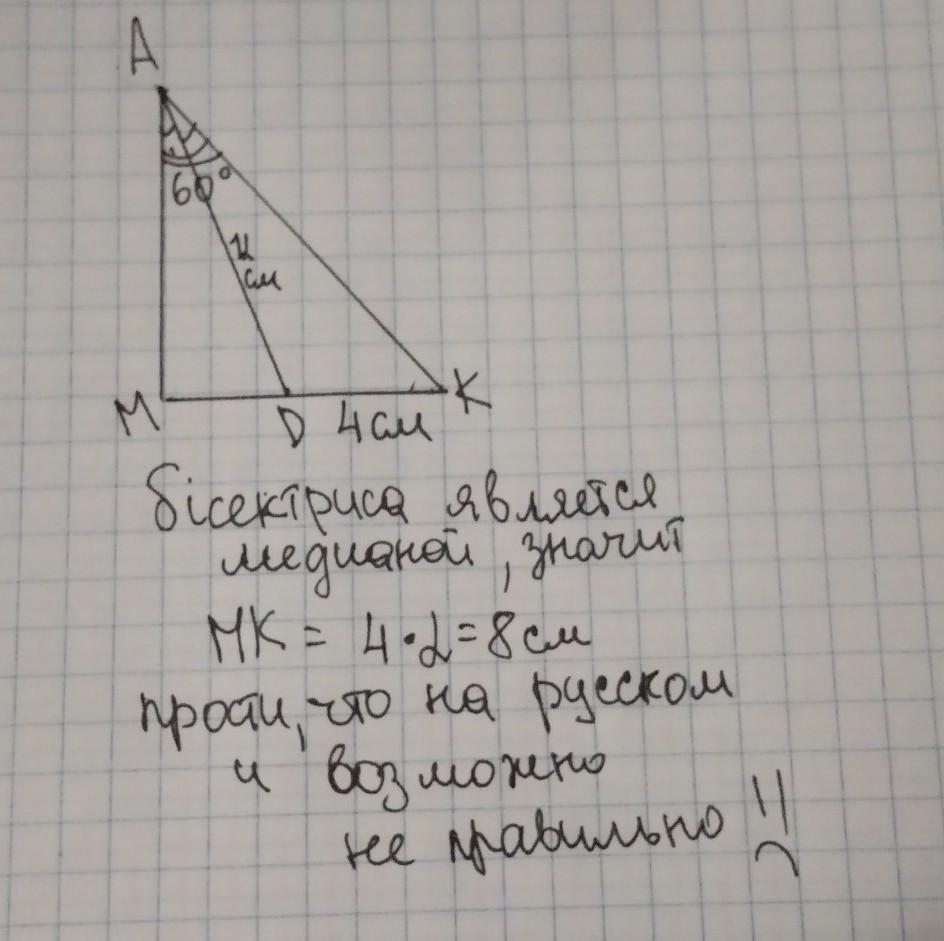 A
60°
4
см
M
D 4см
K
бісектриса является
медианой, значит
MK = 4·2=8см
прости, что на русском
и возможно
не правильно !!